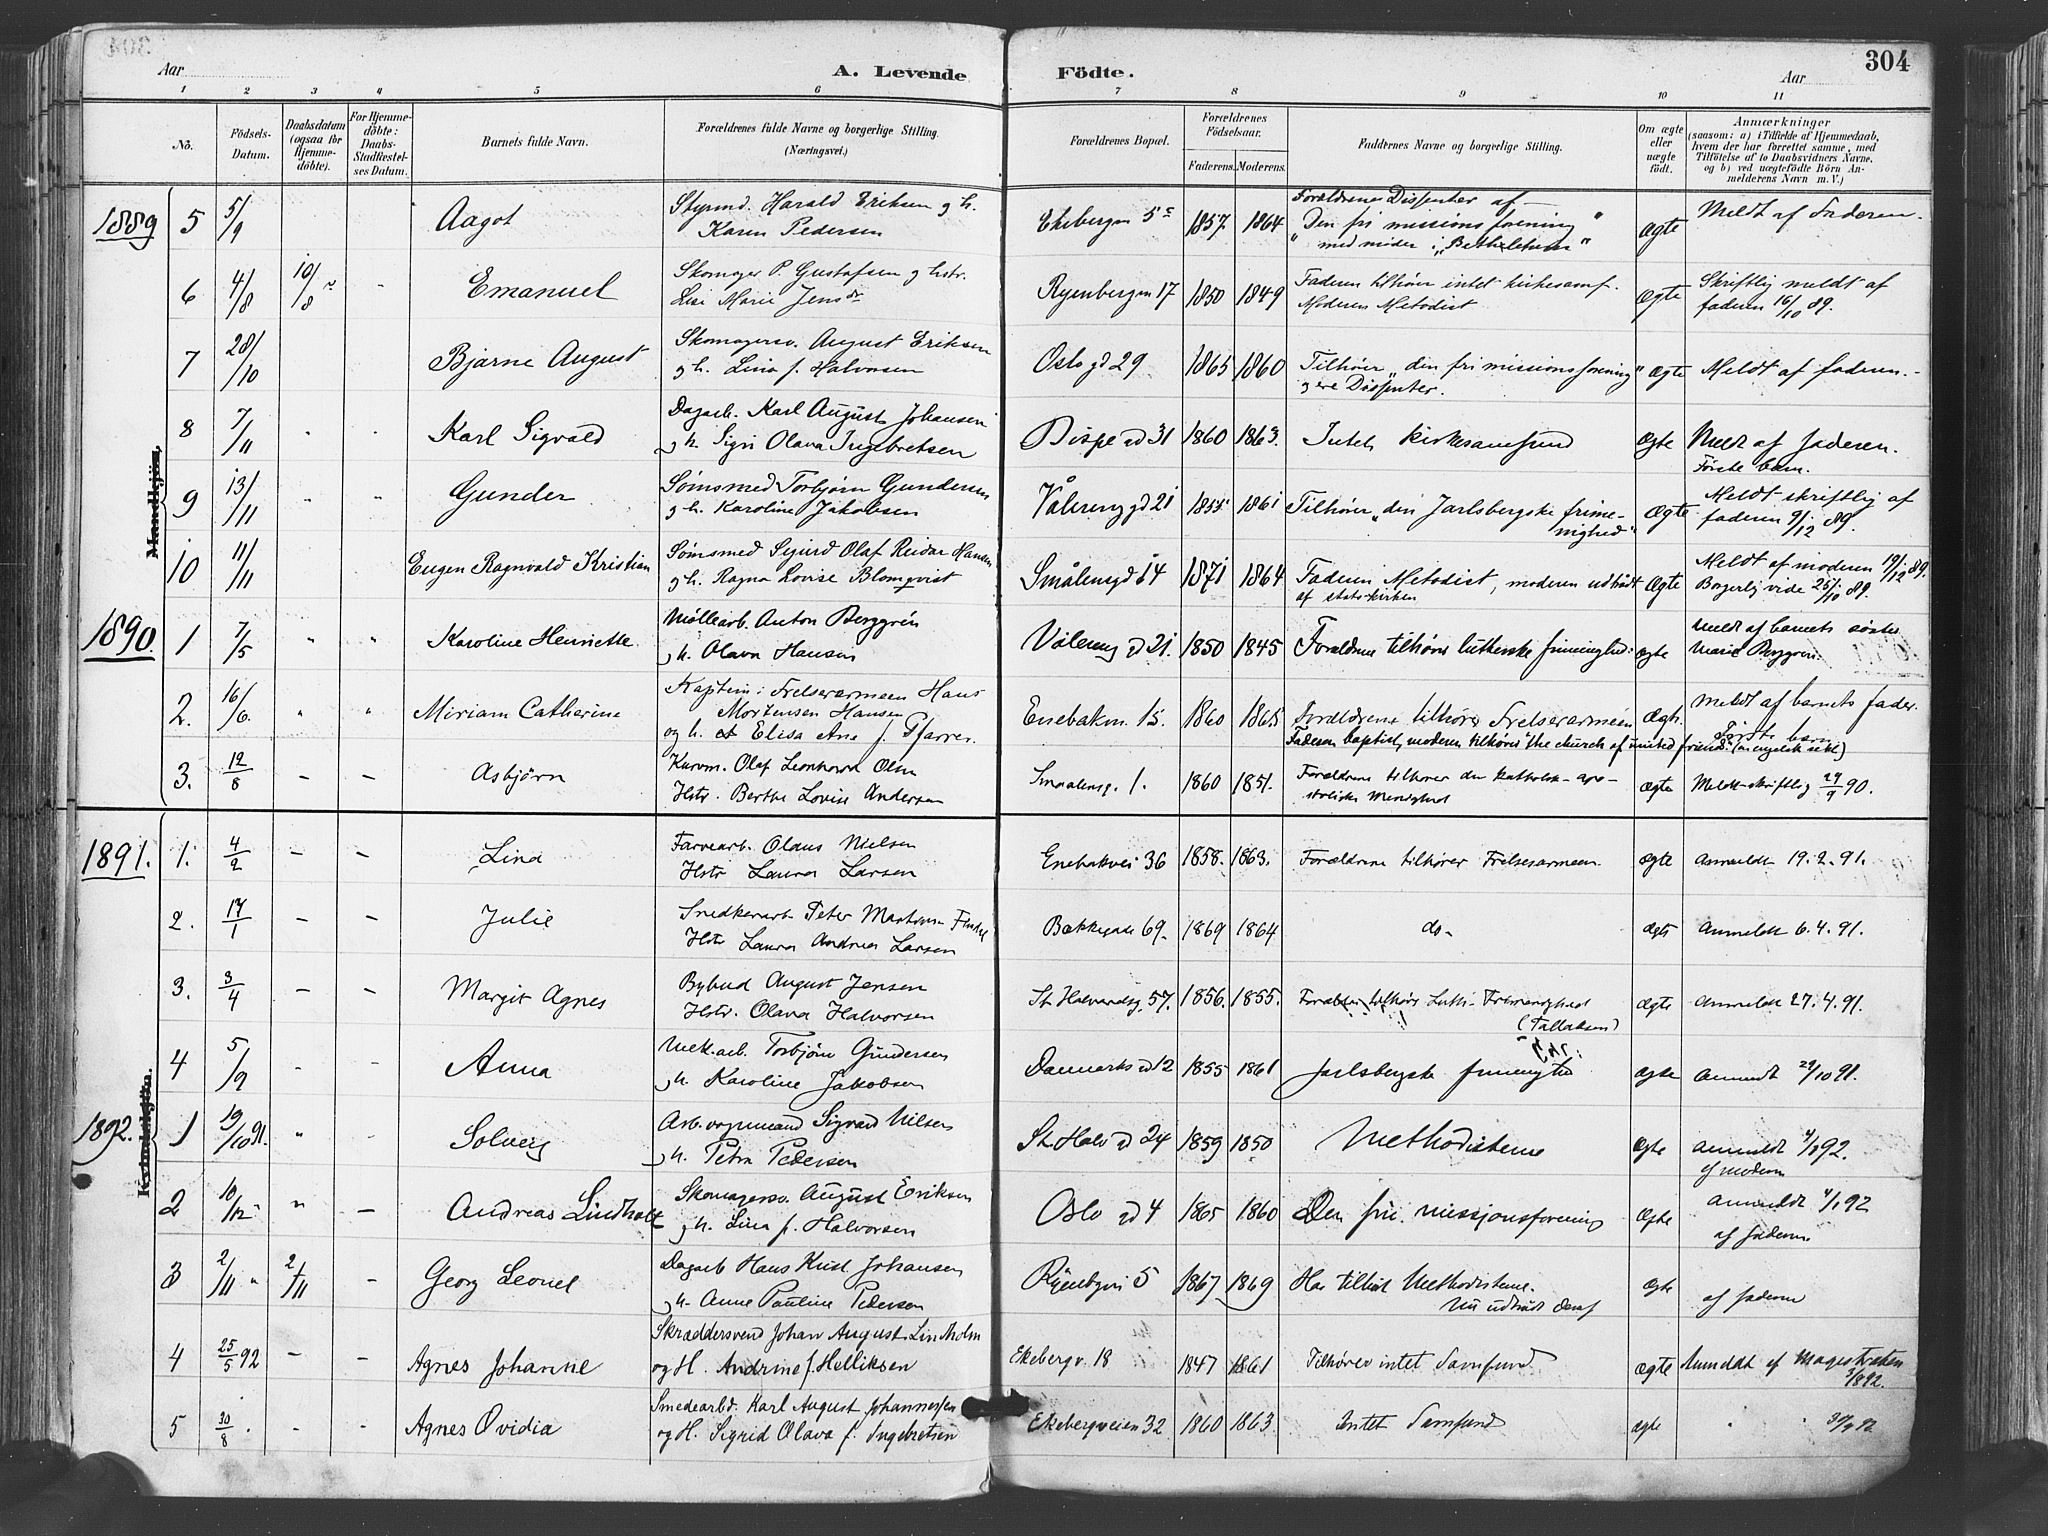 304
Aar
A. Levende Födte.
Aar
1 2 3 4 5 6 7 8 9 10 11
No.
Födsels-Datum.
Daabsdatum (ogsaa for Hjemme-döbte).
For Hjemme-döbte: Daabs-Stadfæstel-ses Datum.
Barnets fulde Navn.
Forældrenes fulde Navne og borgerlige Stilling. (Næringsvei.)
Forældrenes Bopæl.
Forældrenes Födselsaar.
Faderens. Moderens.
Faddernes Navne og borgerlige Stilling.
Om ægte eller uægte födt.
Anmærkninger
(saasom: a) i Tilfælde af Hjemmedaab, hvem der har forrettet samme, med Tilföielse af to Daabsvidners Navne. og b) ved uægtefödte Börn An-melderens Navn m. V.)
Mandkjön.
Kvindekjön.
1889 5 5/9 Aagot Styrmd. Harald Eriksen g h. Karen Pedersen Ekebergvn 5 1857 1864 Forældrene Dissenter af "Den fri missionsforening" med møder i "Bethlehem" ægte Meldt af Faderen.
6 4/8 10/8 - Emanuel Skomager P. Gustafsen g hstr. Lise Marie Jensdr Ryenbergvn 17 1850 1849 Faderen tilhører intet kirkesamf. Moderen Metodist ægte Skriftlig meldt af faderen 16/10 89.
7 28/10 Bjarne August Skomagersv. August Eriksen g h. Lina f. Halvorsen Oslo gd 29 1865 1860 Tilhører "den fri missionsforening" g ere Dissenter. ægte Meldt af faderen.
8 7/11 Karl Sigvald Dagarb. Karl August Johansen g h. Sigri Olava Ingebretsen Bispe gd 31 1860 1863. Intet kirkesamfund ægte Meldt af faderen. Første barn.
9 13/11 Gunder Sømsmed Torbjørn Gundersen g h. Karoline Jakobsen Vålereng gd 21 1855 1861 Tilhører "den Jarlsbergske frime-nighed" Ægte Meldt skriftlig af faderen 9/12 89.
10 11/11 Eugen Ragnvald Kristian Sømsmed Sigurd Olaf Reidar Hansen g h. Ragna Lovise Blomqvist Smålensgd 14 1871 1864 Faderen Metodist, moderen udtrådt af statskirken Ægte Meldt af moderen 19/12 89. Borgerlig vide 25/10 89.
1890. 1 7/5 " " Karoline Henriette Møllearb. Anton Berggrén g h. Olava Hansen Vålereng gd 21. 1850 1845 Forældrene tilhører lutherske frimenighed. ægte Meldt af barnets søster Marie Berggren.
2. 16/6. " " Miriam Catherine Kaptein i Frelserarmeen Hans Mortensen Hansen og h. Elisa Ane f. Pfarrer. Enebakvn. 15. 1860 1865 Forældrene tilhører Frelserarmeen Faderen baptist, moderen tilhører "the church of united friends" (en engelsk sekt) Ægte. Meldt af barnets fader. Første barn
3. 12/8 - - Asbjörn Kurvm. Olaf Leonhard Olsen Hstr. Berthe Lovise Andersen Smaalensg. 1. 1860 1851. Forældrene tilhører den katholsk-apo-stoliske Menighed ægte Meldt skriftlig 29/9 90.
1891. 1. 4/2 - - Lina Farvearb. Olaus Nielsen Hstr Laura Larsen Enebakvei 36 1858. 1863. Forældrene tilhører Frelsesarmeen. ægte Anmeldt 19.2.91.
2. 17/1 - - Julie Snedkerarb. Peter Martinus Hstr Laura Andrea Larsen Bakkegade 69. 1869 1864 do- ægte Anmeldt 6.4.91.
3. 3/4 - - Margit Agnes Bybud August Jensen Hstr. Olava Halvorsen St. Halvardsg. 57. 1856. 1855. Forældre tilhører Luth. Frimenighed (Tallaksen) ægte Anmeldt 27.4.91.
4 5/9 - - Anna Mek.arb. Torbjørn Gundersen g h. Karoline Jakobsen Danmarks gd 12 1855 1861 Jarlsbergske frimenighed ægte Anmeldt 29/10 91.
1892. 1 19/10 91. " - Solveig Arb.vognmand Sigvard Nilsen g h. Petra Pedersen St. Halv gd 24 1859 1850 Methodisterne ægte Anmeldt 4/1 92. af modern
2 10/12 " - Andreas Lindholt Skomagersv. August Eriksen g h. Lina f. Halvorsen Oslo gd 4 1865 1860 Den frie missjonsforening ægte Anmeldt 4/1 92 af faderen
3 2/11 " 2/11 - Georg Leonel Dagarb Hans Krist. Johansen g h. Anne Pauline Pedersen Ryenbgvei 5 1867 1869 Har tilhørt Methodisterne. Nu udtrådt deraf ægte af faderen
4 25/5 92 - - Agnes Johanne Skræddersvend Johan August Lindholm og H. Andrine f. Helliksen Ekebergv. 18 1847 1861 Tilhører intet Samfund. ægte Anmeldt af Magistraten 3/8 92.
5 30/8 " - - Agnes Ovidia Smedearbd. Karl August Johannessen og H. Sigrid Olava f. Ingebretsen Ekebergveien 32 1860 1863. Intet Samfund ægte " 30/9 92.